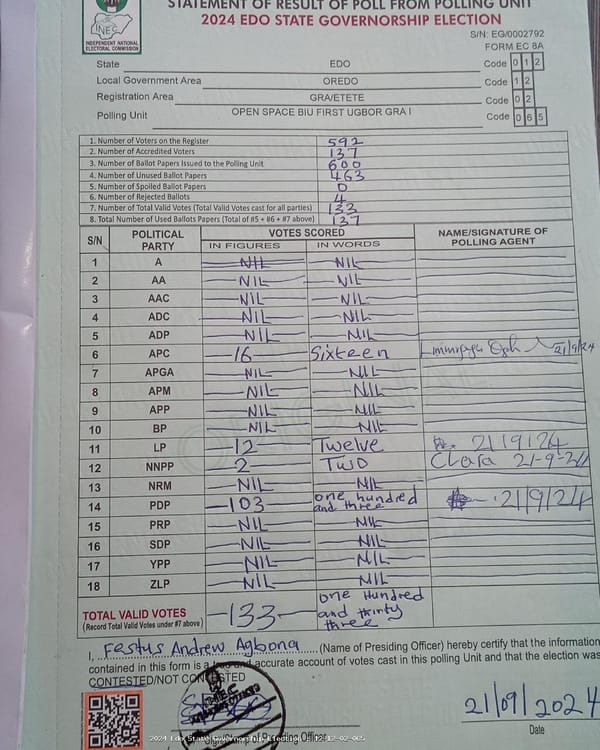 STATEMENT OF RESULT OF POLL FROM POLLING UNIT
2024 EDO STATE GOVERNORSHIP ELECTION
INEC
INDEPENDENT NATIONAL ELECTORAL COMMISSION
S/N: EG/0002792
FORM EC 8A
State EDO Code 0 1 2
Local Government Area OREDO Code 1 2
Registration Area GRA/ETETE Code 0 2
Polling Unit OPEN SPACE BIU FIRST UGBOR GRA I Code 0 6 5
1. Number of Voters on the Register 592
2. Number of Accredited Voters 137
3. Number of Ballot Papers Issued to the Polling Unit 600
4. Number of Unused Ballot Papers 463
5. Number of Spoiled Ballot Papers 0
6. Number of Rejected Ballots 4
7. Number of Total Valid Votes (Total Valid Votes cast for all parties) 133
8. Total Number of Used Ballots Papers (Total of #5 + #6 + #7 above) 137
S/N POLITICAL PARTY VOTES SCORED NAME/SIGNATURE OF POLLING AGENT
IN FIGURES IN WORDS
1 A NIL NIL
2 AA NIL NIL
3 AAC NIL NIL
4 ADC NIL NIL
5 ADP NIL NIL
6 APC 16 Sixteen 21/9/24
7 APGA NIL NIL
8 APM NIL NIL
9 APP NIL NIL
10 BP NIL NIL
11 LP 12 Twelve 21/9/24
12 NNPP 2 TWO Clara 21-9-24
13 NRM NIL NIL
14 PDP 103 one hundred and three 21/9/24
15 PRP NIL NIL
16 SDP NIL NIL
17 YPP NIL NIL
18 ZLP NIL NIL
TOTAL VALID VOTES 133 one Hundred and thirty three
(Record Total Valid Votes under #7 above)
I, Festus Andrew Agbona (Name of Presiding Officer) hereby certify that the information
contained in this form is a accurate account of votes cast in this polling Unit and that the election was
CONTESTED/NOT CONTESTED
21/09/2024
Date
2024 Edo State Governorship Election - 12-12-02-065